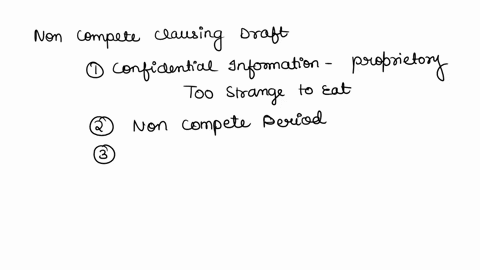 Non Compete Clausing Draft
① Confidential Information - Proprietory
Too Strange to Eat
② Non Compete Period
③